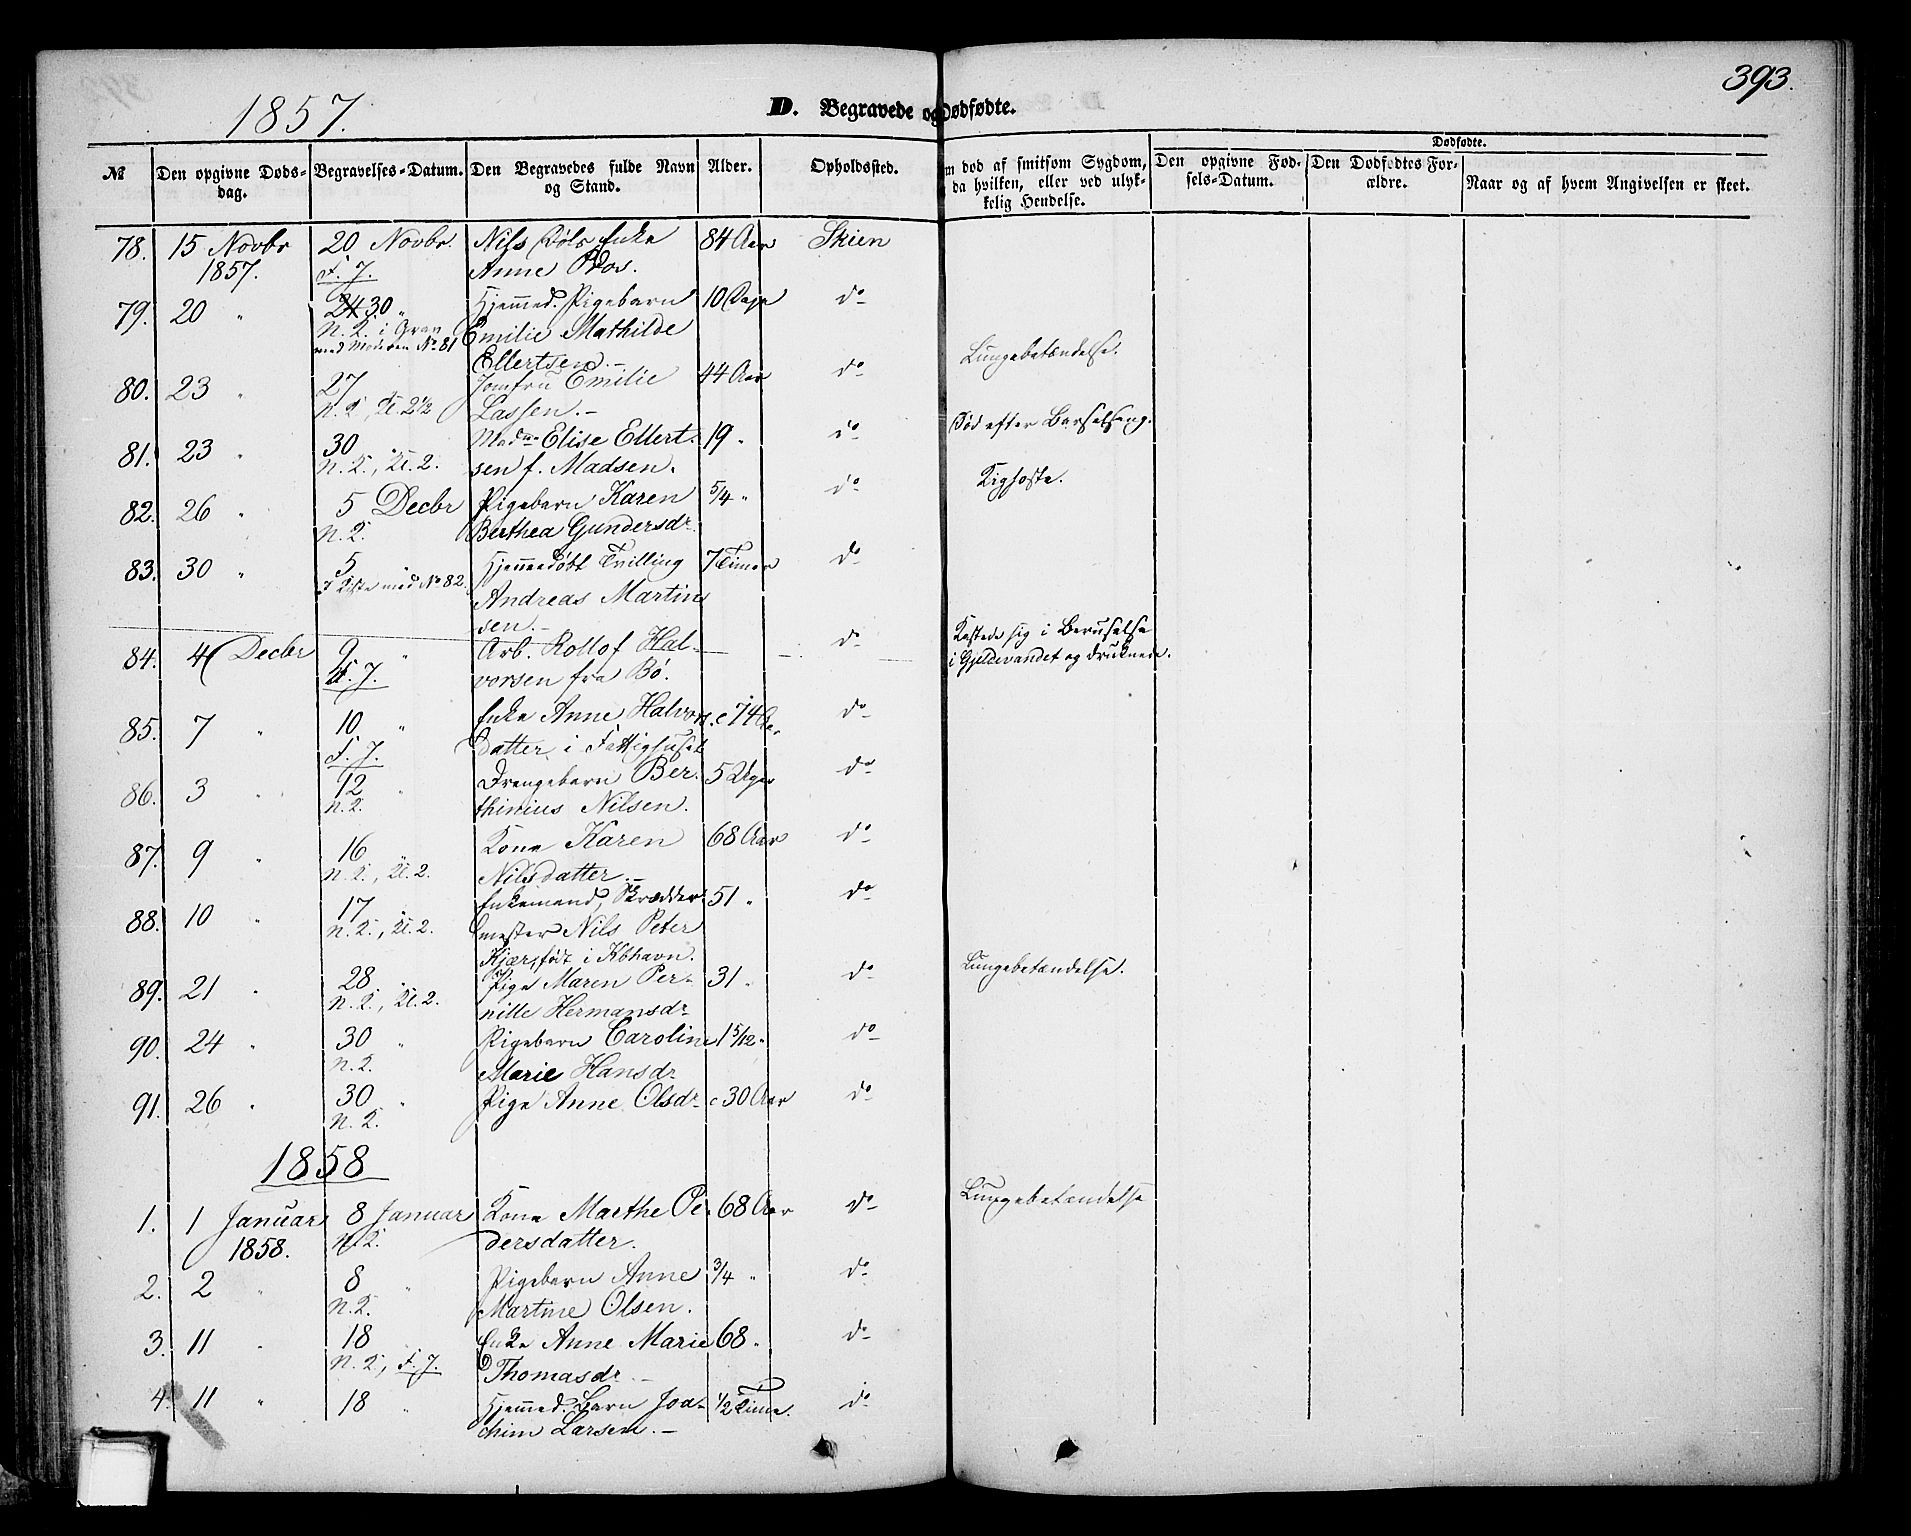 393.
1857.
D. Begravede og Dødfødte.
№
Den opgivne Døds-dag.
Begravelses-Datum.
Den Begravedes fulde Navn og Stand.
Alder.
Opholdssted.
m død af smitsom Sygdom, da hvilken, eller ved ulyk-kelig Hendelse.
Dødfødte.
Den opgivne Fød-sels-Datum.
Den Dødfødtes For-ældre.
Naar og af hvem Angivelsen er skeet.
78. 15 Novbr 20 Novbr. Nils Enke 84 Aar Skien
1857. F. J. Anne
79. 20 " 24 30 " Hjemmed. Pigebarn 10 Dage do
N. K. i Grav Emilie Mathilde
med Moderen No 81 Ellertsen.-
Lungebetændelse.
80. 23 " 27 Jomfru Emilie 44 Aar do
N. K., Kl. 2½ Lassen.-
Død efter Barselseng.
81. 23 " 30 " Madam Elise Ellert- 19 " do
N. K., Kl. 2. sen f. Madsen.
Kighoste.
82. 26 " 5 Decbr Pigebarn Karen 5/4 " do
N. K. Berthea Gundersdr
83. 30 " 5 " Hjemmedøbt Tvilling 7 Timer do
I Kiste med No 82. Andreas Martin
sen.-
84. 4 Decbr 9 " Arb. Rollof Hal- do Kastede sig i Beruselse
F. J. vorsen fra Bø. i Gjeldevandet og druknede.
85. 7 " 10 " Enke Anne Halvors c 74 Aar do
F. J. datter i Fattighuset
86. 3 " 12 " Drengebarn Ber- 5 Uger do
N. K. thinius Nilsen.
87. 9 " 16 Kone Karen 68 Aar do
N. K., Kl. 2. Nilsdatter.-
88. 10 " 17 Enkemand, Skrædder- 51 " do
N. K., Kl. 2. mester Nils Peter
Kjær, født i Kbhavn.
89. 21 " 28 " Pige Maren Per- 31 " do Lungebetændelse.
N. K., Kl. 2. nille Hermansdr
90. 24 " 30 " Pigebarn Caroline 1 5/12 " do
N. K. Marie Hansdr
91. 26 " 30 " Pige Anne Olsdr c 30 Aar do
N. K.
1858
1. 1 Januar 8 Januar Kone Marthe Pe- 68 Aar do Lungebetændelse
1858. N. K. dersdatter.
2. 2 " 8 " Pigebarn Anne 3/4 " do
N. K. Martine Olsen.
3. 11 " 18 Enke Anne Marie 68 " do
N. K., F. J. Thomasdr.-
4. 11 " 18 " Hjemmed. Barn Joa- 1/2 Time. do
chim Larsen.-